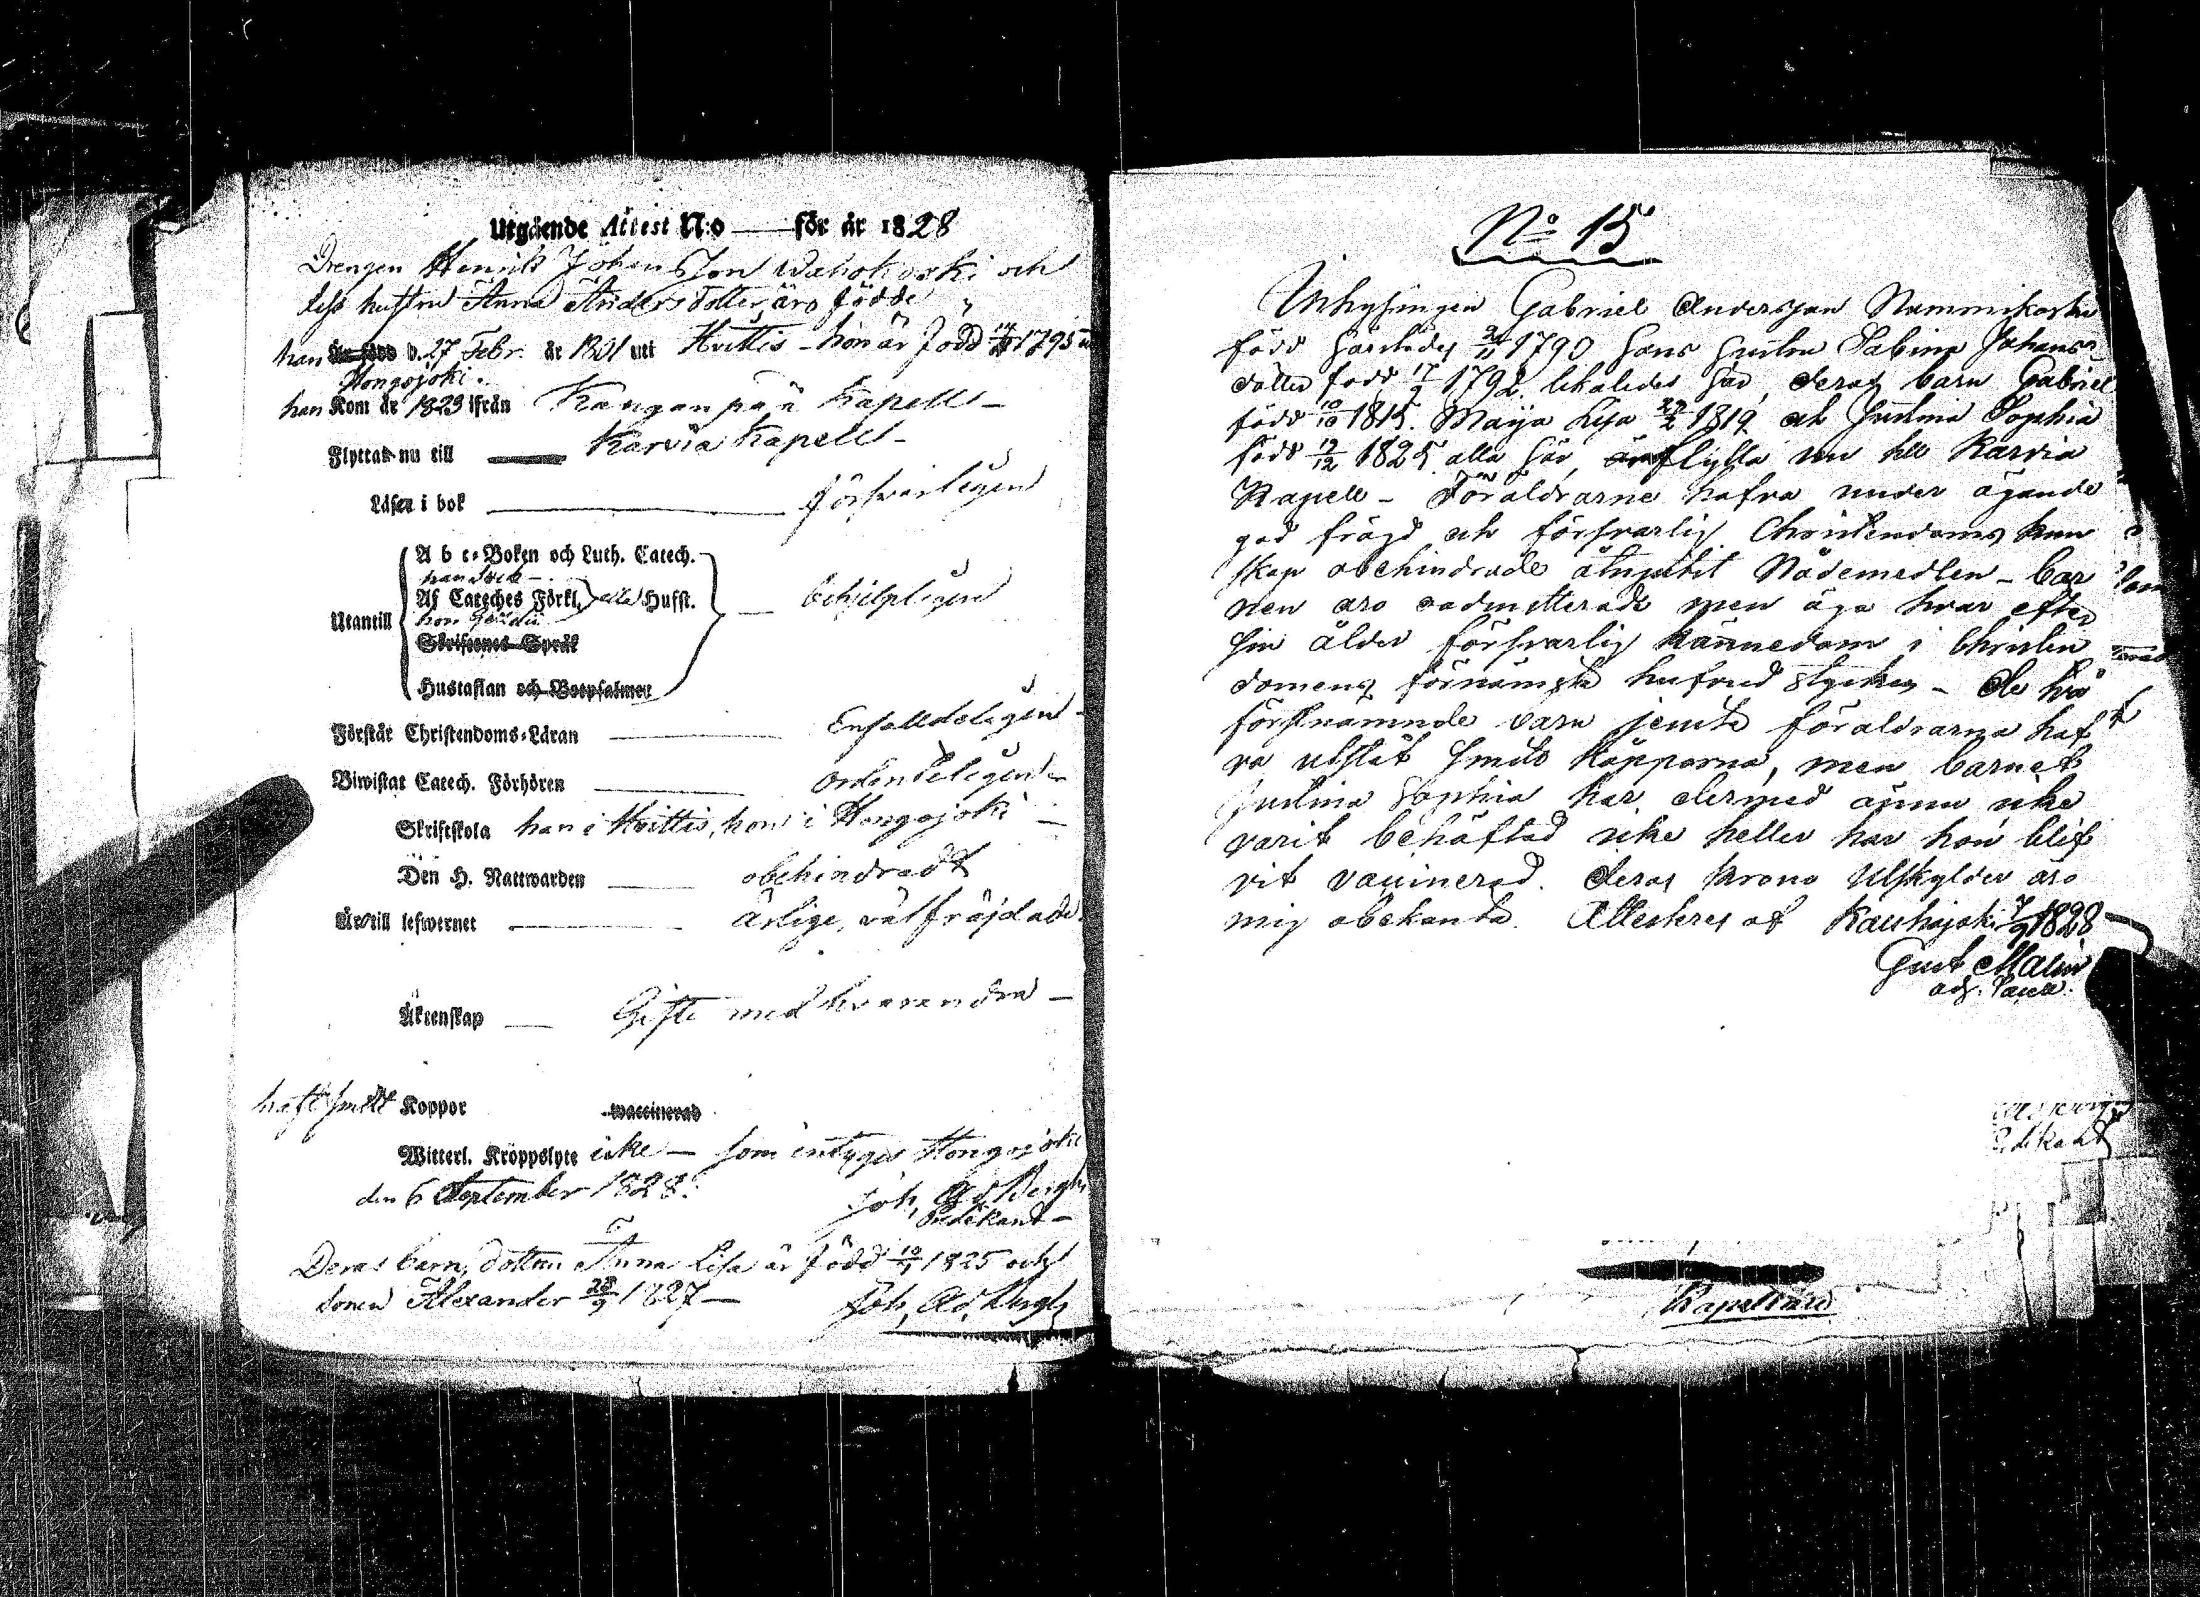 Utgående Attest N:o — för år 1828
Drengen Henrik Johansson Wahokoski och
dess hustru Anna Andersdotter, äro födde
han Är född d. 27 Febr. år 1801 uti Huittis - hon är född 1795
Hongojoki.
han Kom år 1823 ifrån Kanganpää Kapell -
Flyttat nu till Karvia Kapell -
Läser i bok försvarligen
A b c-Boken och Luth. Catech.
han dock -
Af Cateches Förkl. Husst.
Utantill hon
behjelpligen
Skriftenes Språk
Hustaflan och Botpsalmer
Förstår Christendoms-Läran Enfalldeligen -
Biwistat Catech. Förhören ordenteligen -
Skriftskola han i Huittis, hon i Hongojoki -
Den H. Nattwarden obehindradt
Är till lefwernet ärlige, välfräjdade.
Äktenskap Gifte med hvarandra -
haft smitt Koppor waccinerad
Witterl. Kroppslyte icke - som intygas Hongojoki
den 6 September 1828.
Joh. Ad. Bergh
Predikant -
Deras barn, dottren Anna Lisa är född 1825 och
sonen Alexander 28/9 1827 -
Joh. Ad. Bergh
N:o 15
Inhysingen Gabriel Andersson Nummikoski
född härstädes 1790 hans hustru Sabina Johans-
dotter född 17/9 1792. likaledes här, deras barn Gabriel
född 10/10 1815. Maija Lisa 22/2 1819 och Justina Sophia
född 19/12 1825 alla här, flytta nu till Karvia
Kapell - Föräldrarne hafva under ägande
god frägd och försvarlig Christendoms kun
skap obehindrade åtnjutit Nådemedlen - bar
nen äro oadmitterade men äga hvar efter
sin ålder försvarlig kännedom i Christen
domens förnämsta hufvud stycken - de två
förstnämnde barn jemte föräldrarna haf
va utstått Smitt Kopporna, men barnet
Justina Sophia har dermed ännu icke
varit behäftad icke heller har hon blif
vit vaccinerad. deras krono Utskylder äro
mig obekanta. Attesteras af Kauhajoki 7/9 1828
Gust Malin
adj. Pacca.
Predikant
Kapellan